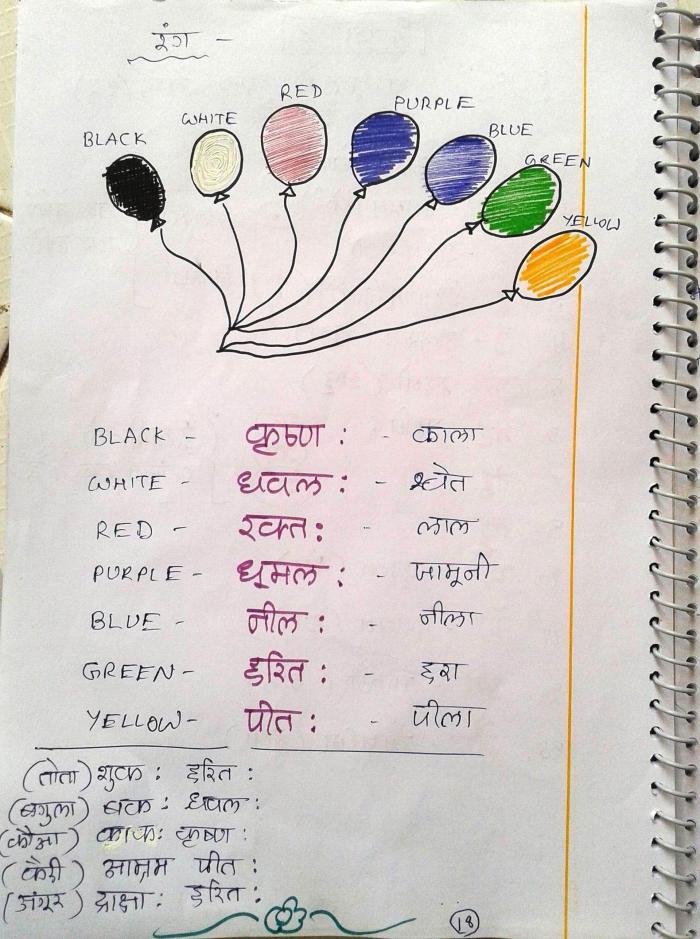 रंग -
BLACK
WHITE
RED
PURPLE
BLUE
GREEN
YELLOW
BLACK - कृष्ण : - काला
WHITE - धवल : - श्वेत
RED - रक्त : - लाल
PURPLE - धूमल : - जामूनी
BLUE - नील : - नीला
GREEN - हरित : - हरा
YELLOW - पीत : - पीला
(तोता) शुक : हरित :
(बगुला) बक : धवल :
(कौआ) काक : कृष्ण :
(कैरी) आम्रम पीत :
(अंगूर) द्राक्षा : हरित :
18